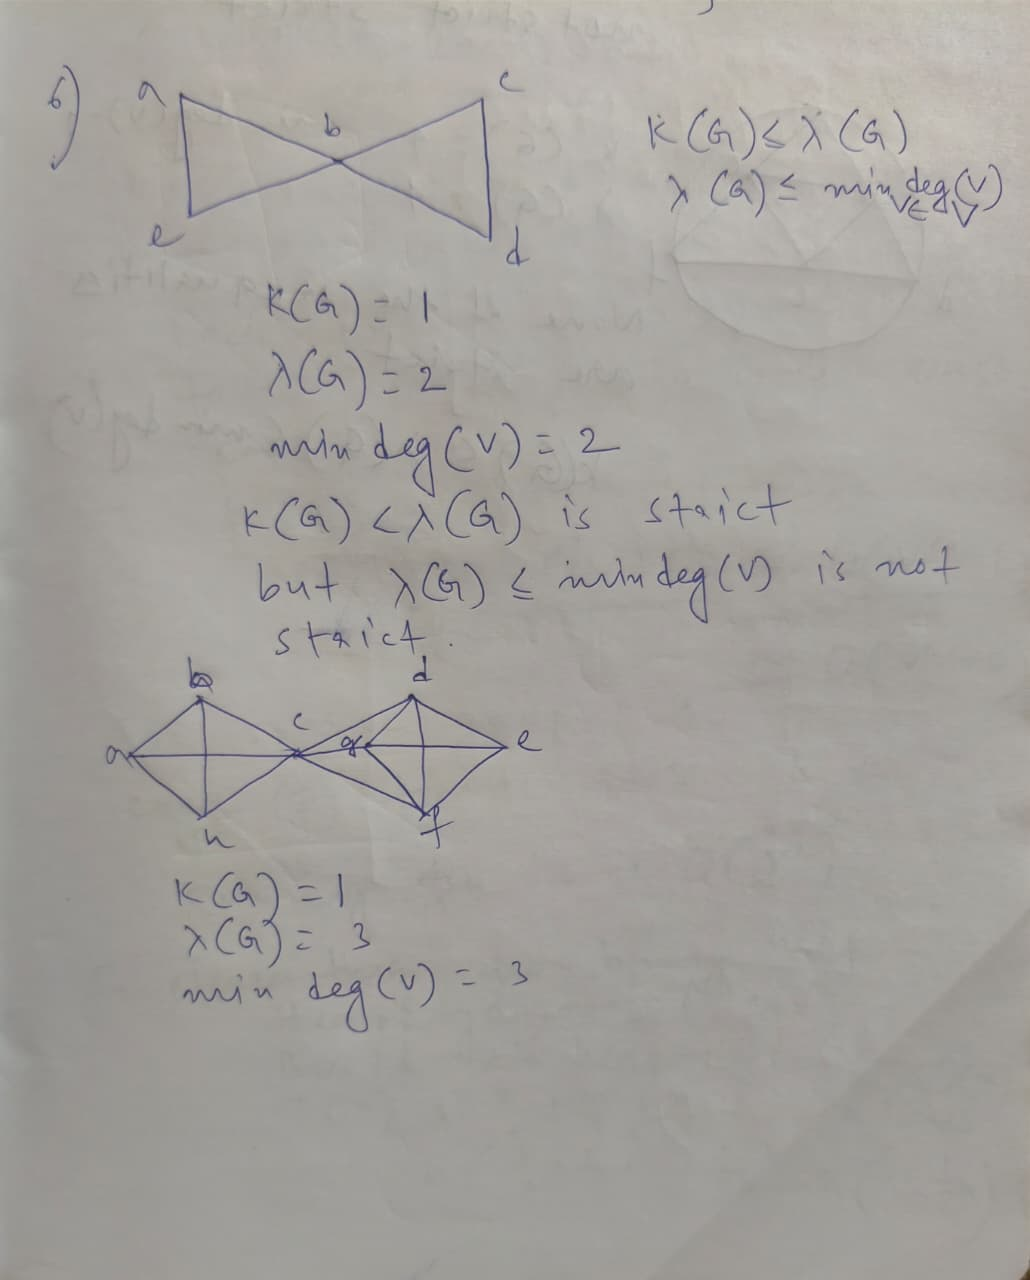 6)
a
b
c
e
d
K(G) ≤ λ(G)
λ(G) ≤ min deg(V)
V∈V
K(G) = 1
λ(G) = 2
min deg(V) = 2
K(G) < λ(G) is strict
but λ(G) ≤ min deg(V) is not
strict.
b
d
c
a
g
e
h
f
K(G) = 1
λ(G) = 3
min deg(V) = 3